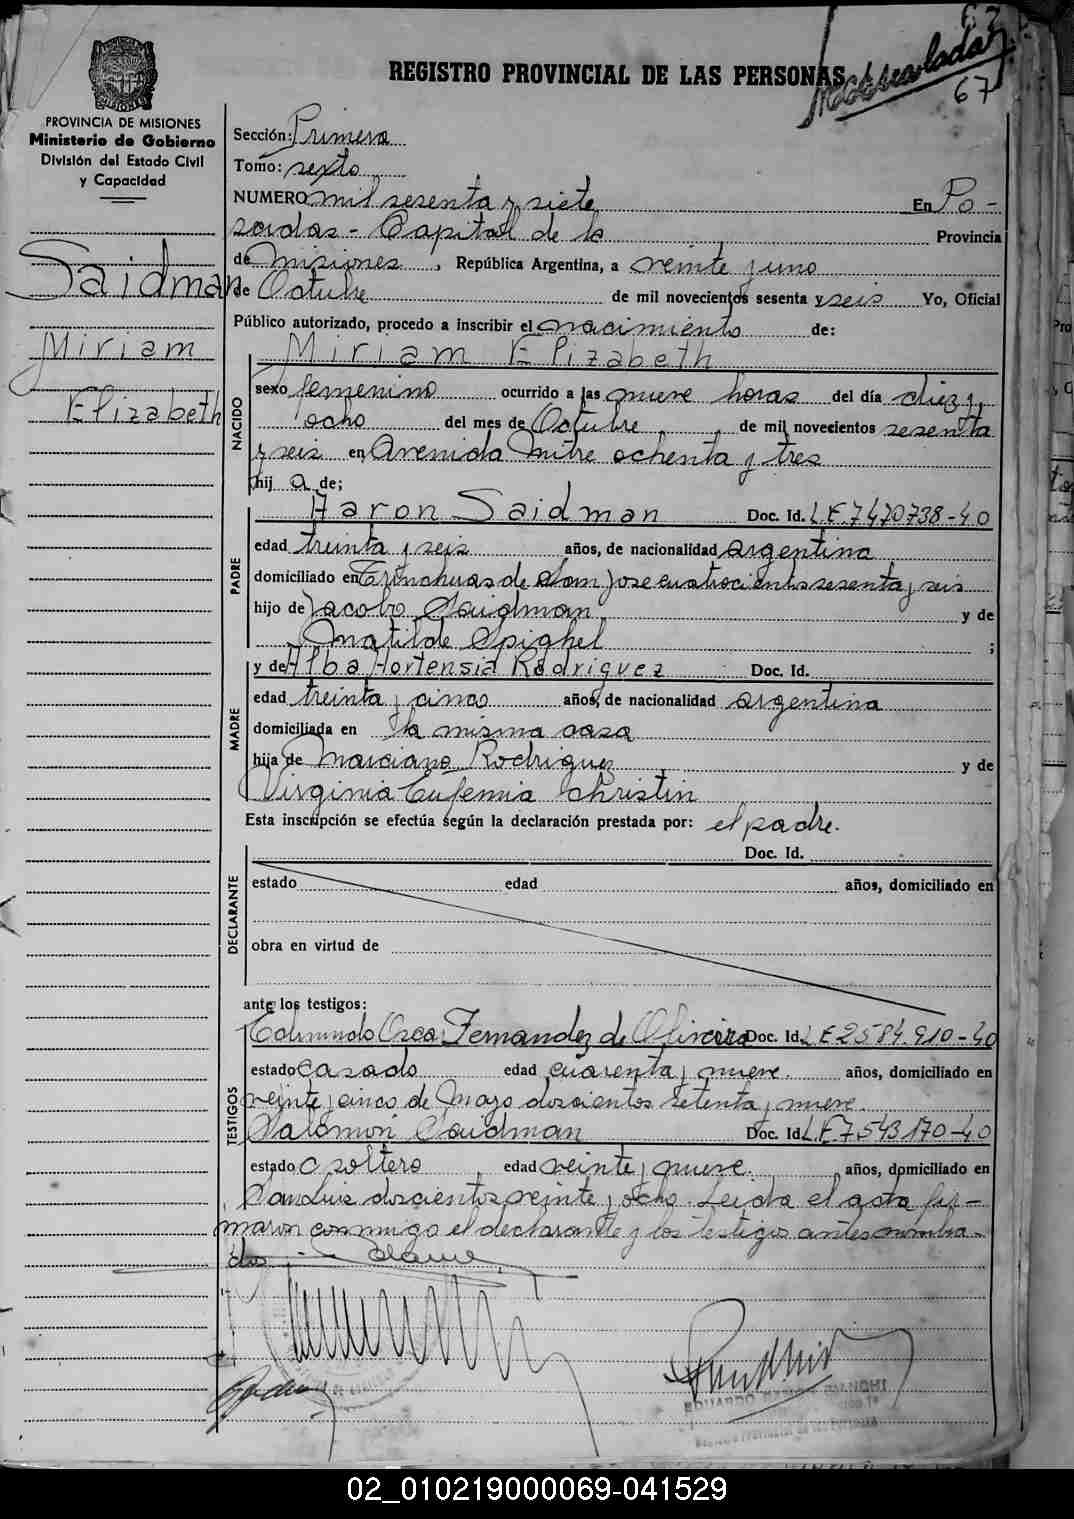 67
REGISTRO PROVINCIAL DE LAS PERSONAS
67
PROVINCIA DE MISIONES
Ministerio de Gobierno
División del Estado Civil
y Capacidad
Saidman
Miriam
Elizabeth
Sección: Primera
Tomo: sexto
NUMERO mil sesenta y siete En Po-
sadas - Capital de la Provincia
de Misiones, República Argentina, a veinte y uno
de Octubre de mil novecientos sesenta y seis Yo, Oficial
Público autorizado, procedo a inscribir el nacimiento de:
Miriam Elizabeth
NACIDO
sexo femenino ocurrido a las nueve horas del día diez y
ocho del mes de Octubre de mil novecientos sesenta
y seis en Avenida Mitre ochenta y tres
hij a de;
PADRE
Aaron Saidman Doc. Id. L.E.7470738-40
edad treinta y seis años, de nacionalidad argentina
domiciliado en Trincheras de San Jose cuatrocientos sesenta y seis
hijo de Jacobo Saidman y de
Matilde Spighel ;
MADRE
y de Alba Hortensia Rodriguez Doc. Id.
edad treinta y cinco años, de nacionalidad argentina
domiciliada en la misma casa
hija de Marciano Rodriguez y de
Virginia Eufemia Christin
Esta inscripción se efectúa según la declaración prestada por: el padre.
DECLARANTE
Doc. Id.
estado edad años, domiciliado en
obra en virtud de
ante los testigos:
TESTIGOS
Edmundo Oscar Fernandez de Oliveira Doc. Id. L E 2584.910-40
estado casado edad cuarenta y nueve. años, domiciliado en
veinte y cinco de Mayo doscientos setenta y nueve.
Salomon Saidman Doc. Id. L.E.7543170-40
estado soltero edad veinte y nueve. años, domiciliado en
San Luis doscientos veinte y ocho. Leida el acta fir-
maron conmigo el declarante y los testigos antes nombra-
dos
EDUARDO
02_010219000069-041529